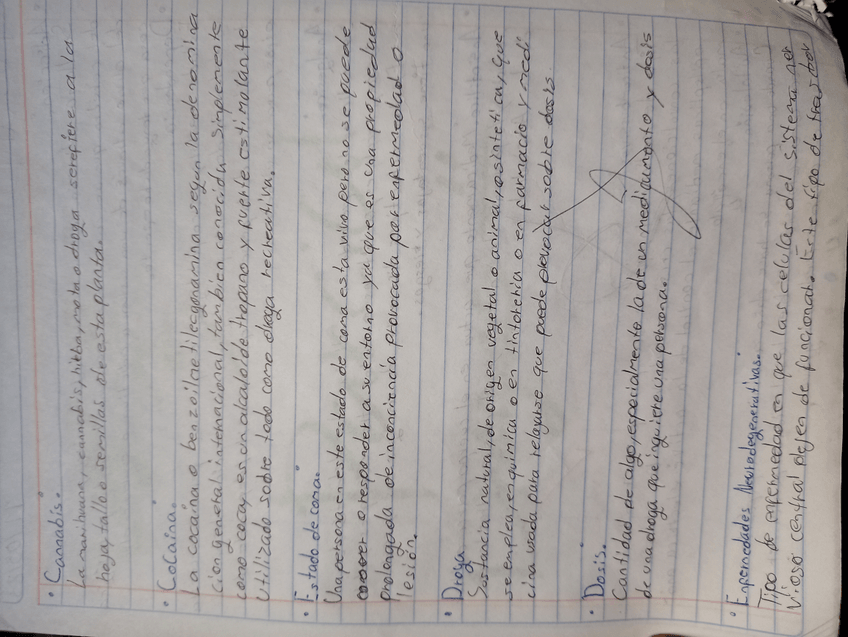 • Cannabis.
La marihuana, cannabis, hierba, mota o droga serefiere a la
hoja, tallo o semillas de esta planta.
• Cocaina.
La cocaina o benzoilmetilecgonamina segun la denomina
cion general internacional, tambien conocida simplemente
como coca, es un alcaloide tropano y fuerte estimulante
Utilizado sobre todo como droga recreativa.
• Estado de coma.
Una persona en este estado de coma esta vivo pero no se puede
mover o responder a su entorno ya que es una propiedad
prolongada de inconciencia provocada por enfermedad o
lesión.
• Droga
Sustancia natural, de origen vegetal o animal, o sintetica, que
se emplea, en quimica o en tintoreria o en farmacia y medi
cina usada para relajarse que puede provocar sobre dosis
• Dosis.
Cantidad de algo, especialmente la de un medicamento y dosis
de una droga que inguiere una persona.
• Enfermedades Neurodegenerativas.
Tipo de enfermedad en que las celulas del sistema ner
vioso central dejen de funcionar. Este tipo de